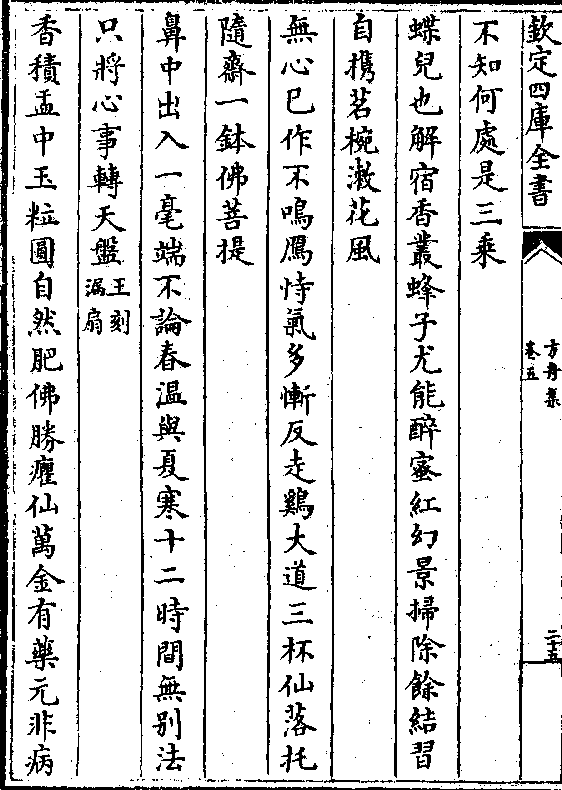 欽定四庫全書
方舟集
卷五
二十五
不知何處是三乘
蝶兒也解宿香叢蜂子尤能醉蜜紅幻景掃除餘結習
自攜茗椀漱花風
無心已作不鳴鴈恃氣多慚反走鷄大道三杯仙落托
隨齋一鉢佛菩提
鼻中出入一毫端不論春溫與夏寒十二時間無別法
只將心事轉天盤王刻漏扇
香積盂中玉粒圓自然肥佛勝癯仙萬金有藥元非病